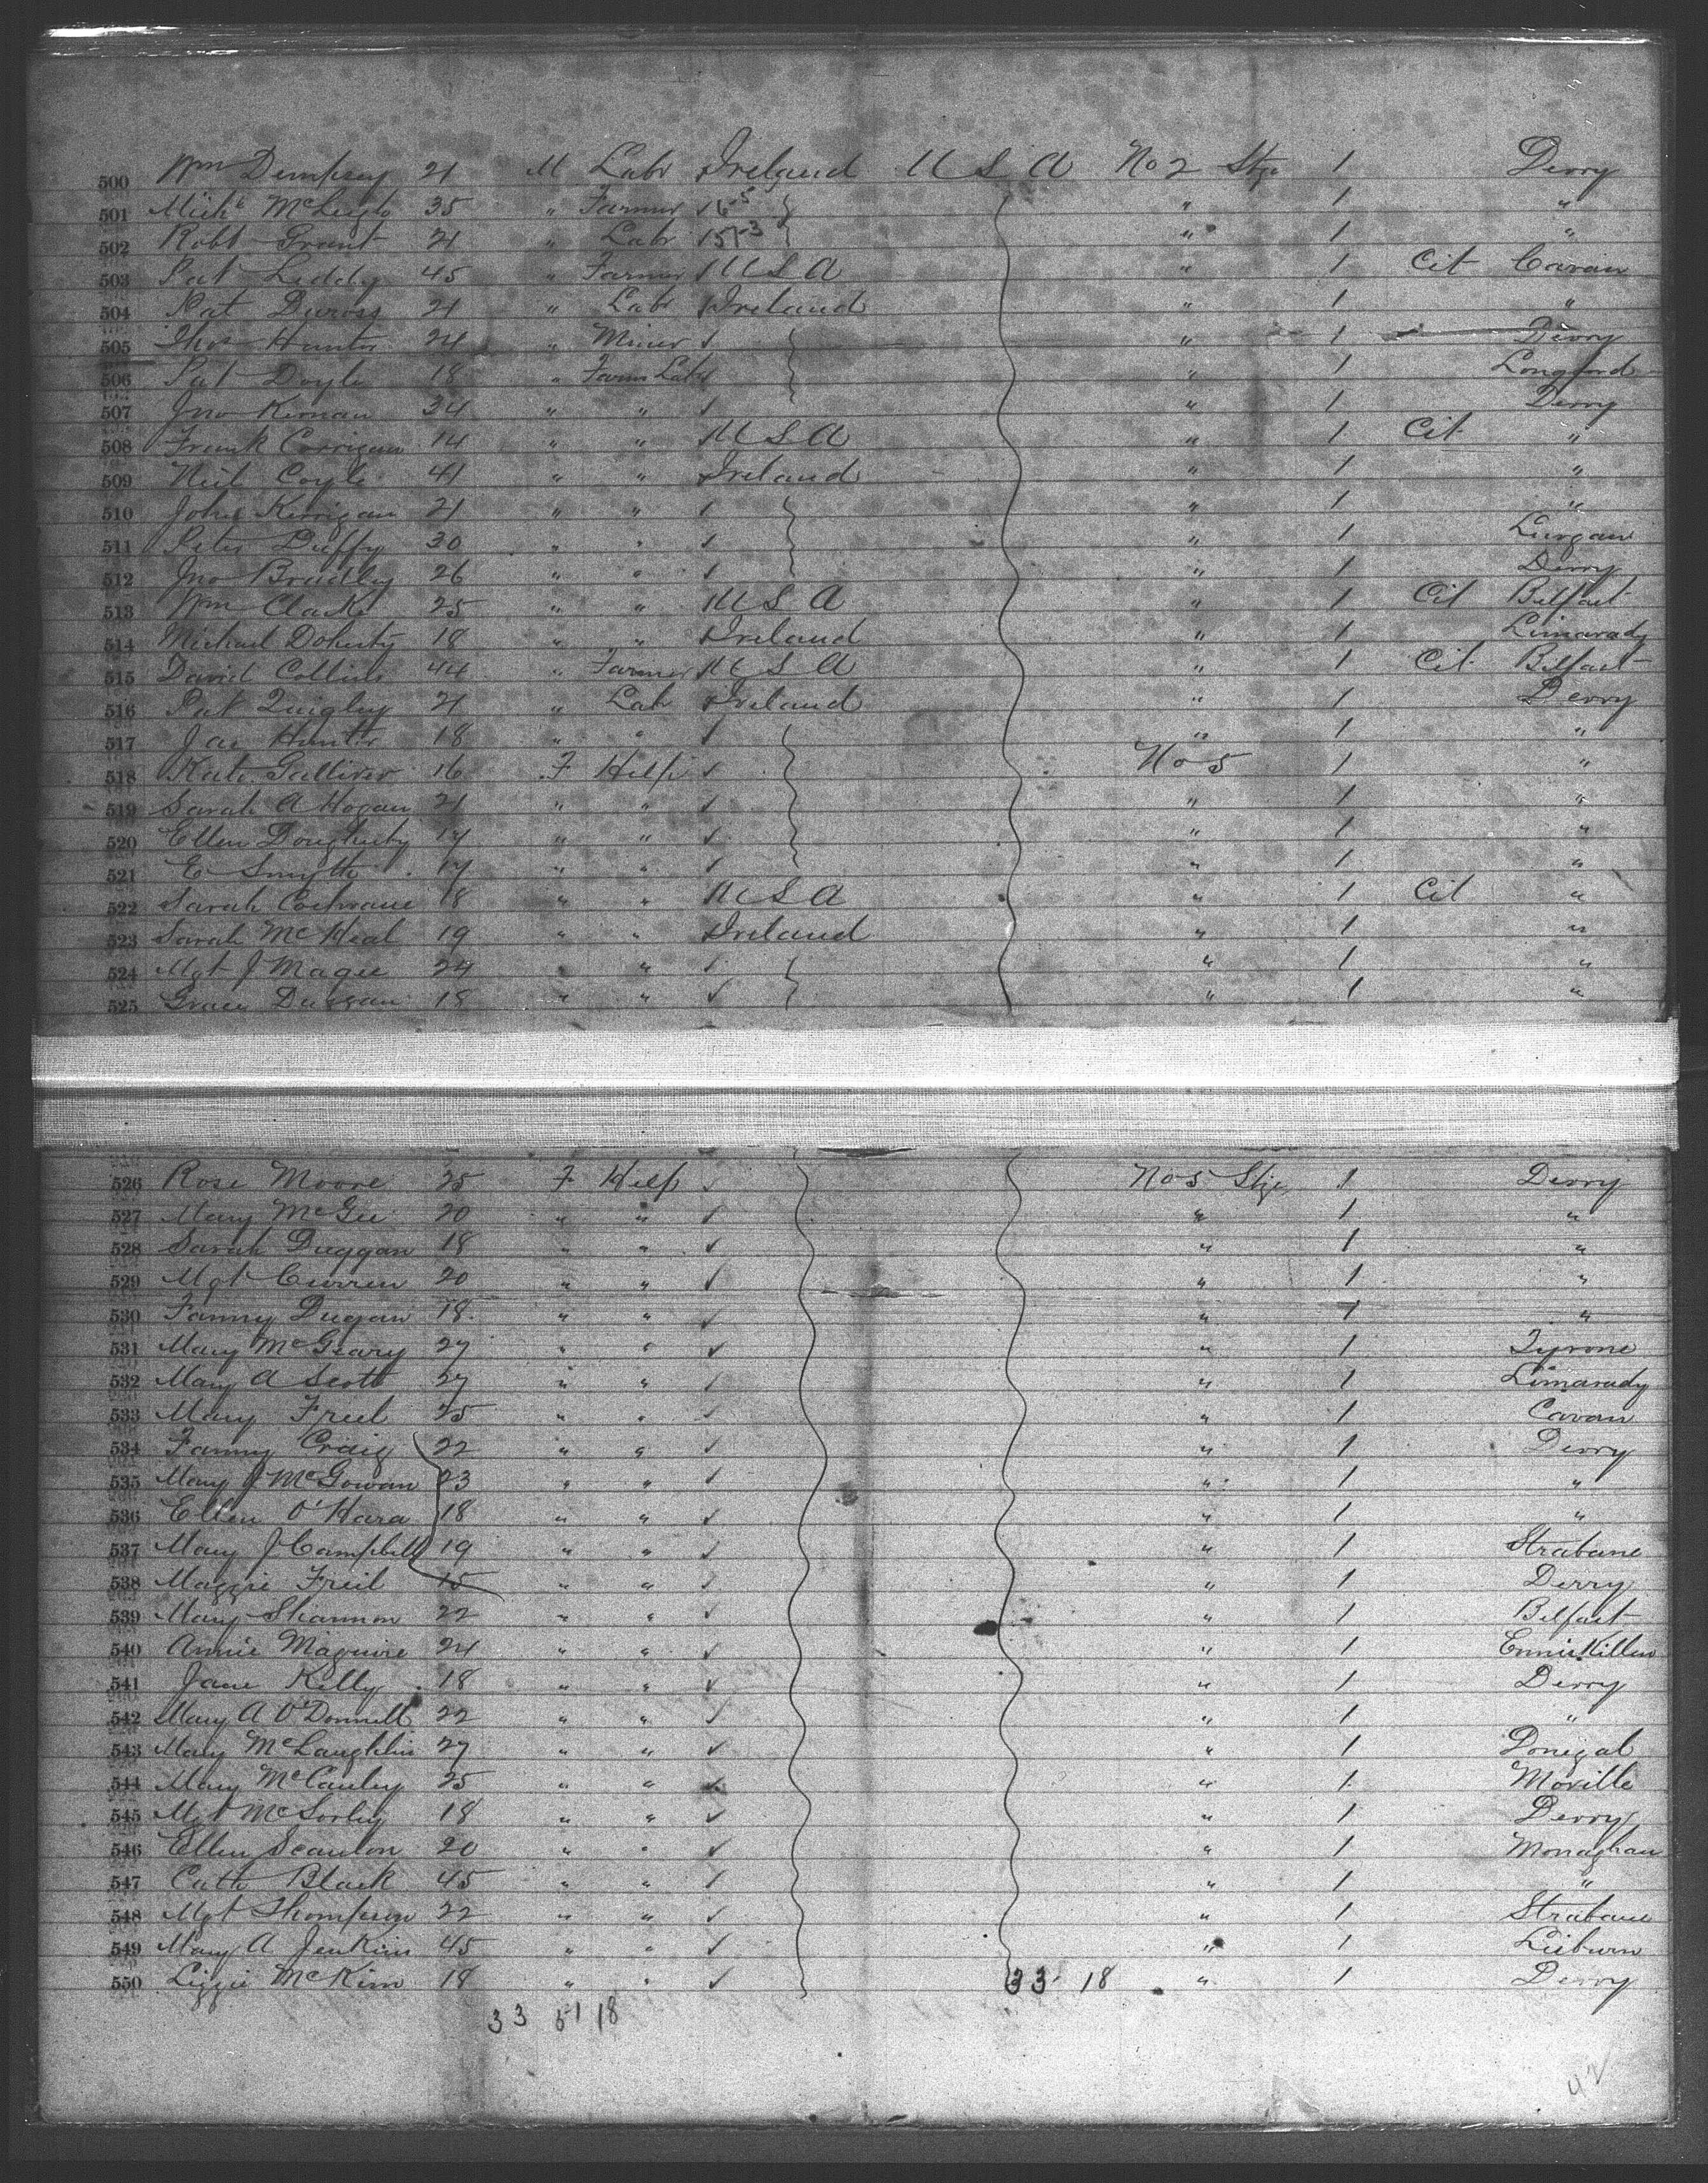 500 Wm Dempsey 21 M Labr Ireland U S A No 2 Stge 1 Derry
501 Michl 35 " Farmer " 1 "
502 Robt Grant 21 " Labr " 1 "
503 Pat Liddy 45 " Farmer U S A " 1 Cit Cavan
504 Pat Duross 21 " Labr Ireland " 1 "
505 Thos Hunter 24 " Miner ✓ " 1 Derry
506 Pat Doyle 18 " Farm Labr " 1 Longford
507 Jno Kernan 34 " " ✓ " 1 Derry
508 Frank Corrigan 14 " " U S A " 1 Cit "
509 Neil Coyle 41 " " Ireland " 1 "
510 John Kerrigan 21 " " ✓ " 1 "
511 Peter Duffy 30 " " ✓ " 1 Lurgan
512 Jno Bradley 26 " " ✓ " 1 Derry
513 Wm Clarke 25 " " U S A " 1 Cit Belfast
514 Michael Doherty 18 " " Ireland " 1 Limavady
515 David Collins 44 " Farmer U S A " 1 Cit Belfast
516 Pat Quigley 21 " Labr Ireland " 1 Derry
517 Jas Hunter 18 " " ✓ " 1 "
518 Kate Galliver 16 F Help ✓ No 5 1 "
519 Sarah A Hogan 21 " " ✓ " 1 "
520 Ellen Dougherty 17 " " ✓ " 1 "
521 E Smyth 17 " " ✓ " 1 "
522 Sarah Cochrane 18 " " U S A " 1 Cit "
523 Sarah McHeal 19 " " Ireland " 1 "
524 Mgt J Magee 24 " " ✓ " 1 "
525 Grace Duggan 18 " " ✓ " 1 "
526 Rose Moore 25 F Help ✓ No 5 Stge 1 Derry
527 Mary McGee 20 " " ✓ " 1 "
528 Sarah Duggan 18 " " ✓ " 1 "
529 Mgt Curren 20 " " ✓ " 1 "
530 Fanny Dugan 18 " " ✓ " 1 "
531 Mary McGeary 27 " " ✓ " 1 Tyrone
532 Mary A Scott 27 " " ✓ " 1 Limavady
533 Mary Friel 25 " " ✓ " 1 Cavan
534 Fanny Craig 22 " " ✓ " 1 Derry
535 Mary J McGowan 23 " " ✓ " 1 "
536 Ellen O'Hara 18 " " ✓ " 1 "
537 Mary J Campbell 19 " " ✓ " 1 Strabane
538 Maggie Freil 15 " " ✓ " 1 Derry
539 Mary Shannon 22 " " ✓ " 1 Belfast
540 Annie Maguire 24 " " ✓ " 1 Enniskillen
541 Jane Kelly 18 " " ✓ " 1 Derry
542 Mary A O'Donnell 22 " " ✓ " 1 "
543 Mary McLaughlin 27 " " ✓ " 1 Donegal
544 Mary McCauley 25 " " ✓ " 1 Moville
545 Mgt McSorley 18 " " ✓ " 1 Derry
546 Ellen Scanlon 20 " " ✓ " 1 Monaghan
547 Cath Black 45 " " ✓ " 1 "
548 Mgt Thompson 22 " " ✓ " 1 Strabane
549 Mary A Jenkins 45 " " ✓ " 1 Lisburn
550 Lizzie McKim 18 " " ✓ 33 18 " 1 Derry
33 51 18
42